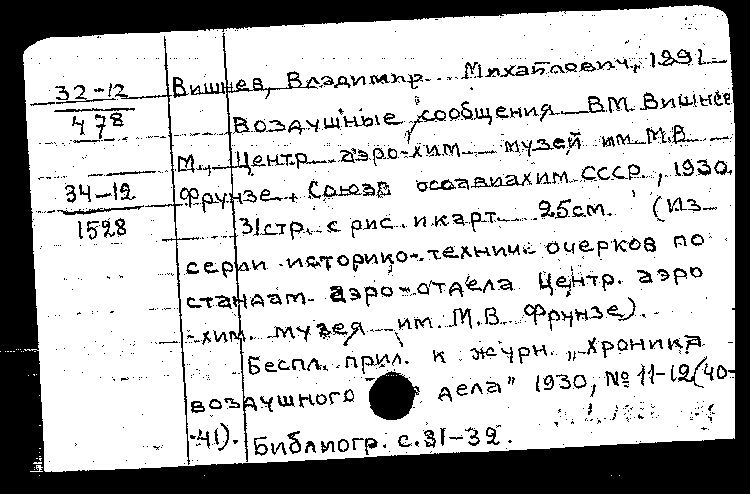 32-12
478
34-12
1528
Вишнев, Владимир Михайлович, 1891
Воздушные сообщения ВМ Вишнев
М., Центр аэро-хим. музей им М.В
Фрунзе, Союза осоавиахим СССР, 1930.
31стр. с рис. и карт. 25см. (Из
серии историко-технич. очерков по
стандат. аэро-отдела Центр. аэро
-хим. музея им. М.В. Фрунзе).
Беспл. прил. к журн. „Хроника
воздушного дела" 1930, № 11-12(40-
-41). Библиогр. с. 31-32.